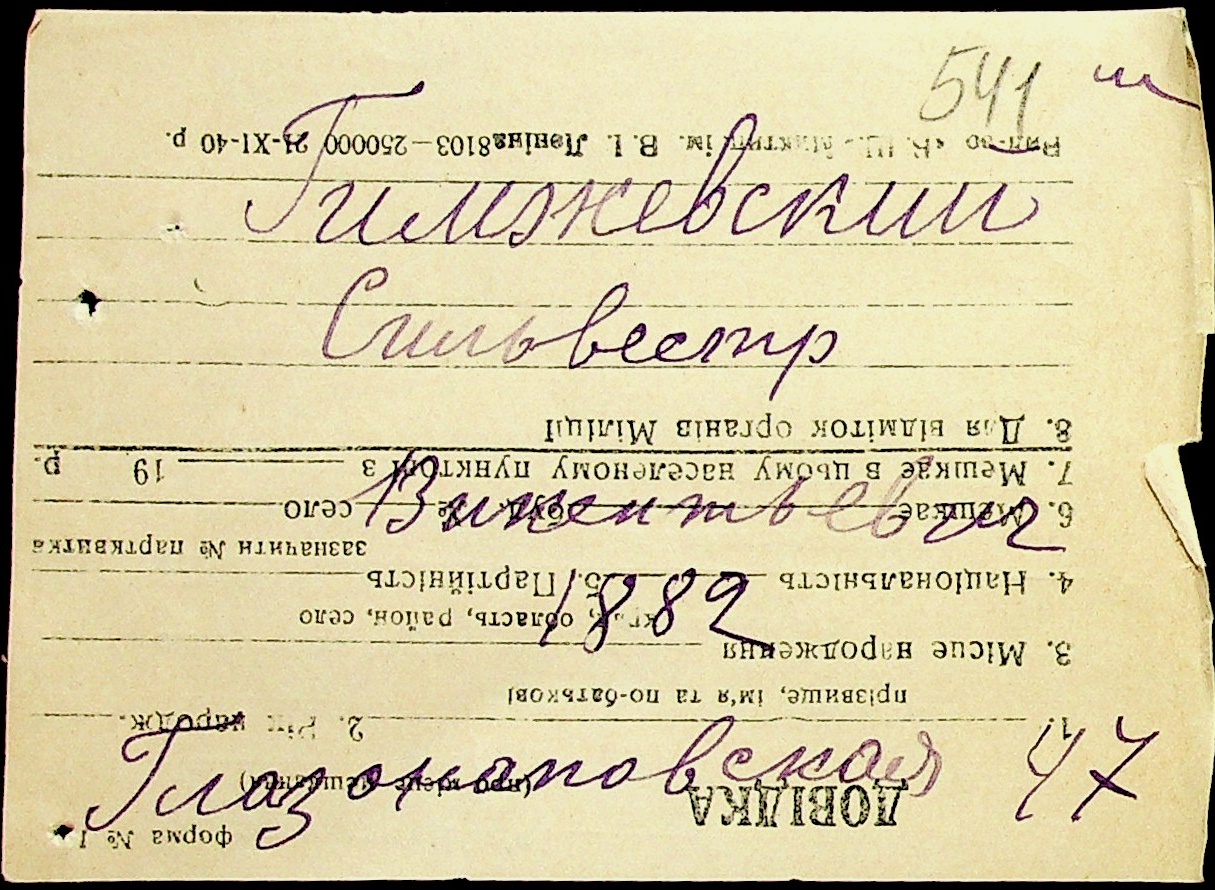 541
Гимжевский
Сильвестр
Викентьевич
1882
47
форма № 1
ДОВІДКА
(про місце мешкання)
1. 2. Рік народж.
прізвище, ім'я та по-батькові
3. Місце народження
край, область, район, село
4. Національність 5. Партійність
зазначити № партквитка
6. Мешкає буд. № село
7. Мешкає в цьому населеному пункті з 19 р.
8. Для відміток органів Міліції
ім. В. І. Леніна 8103—250000 21-XI-40 р.